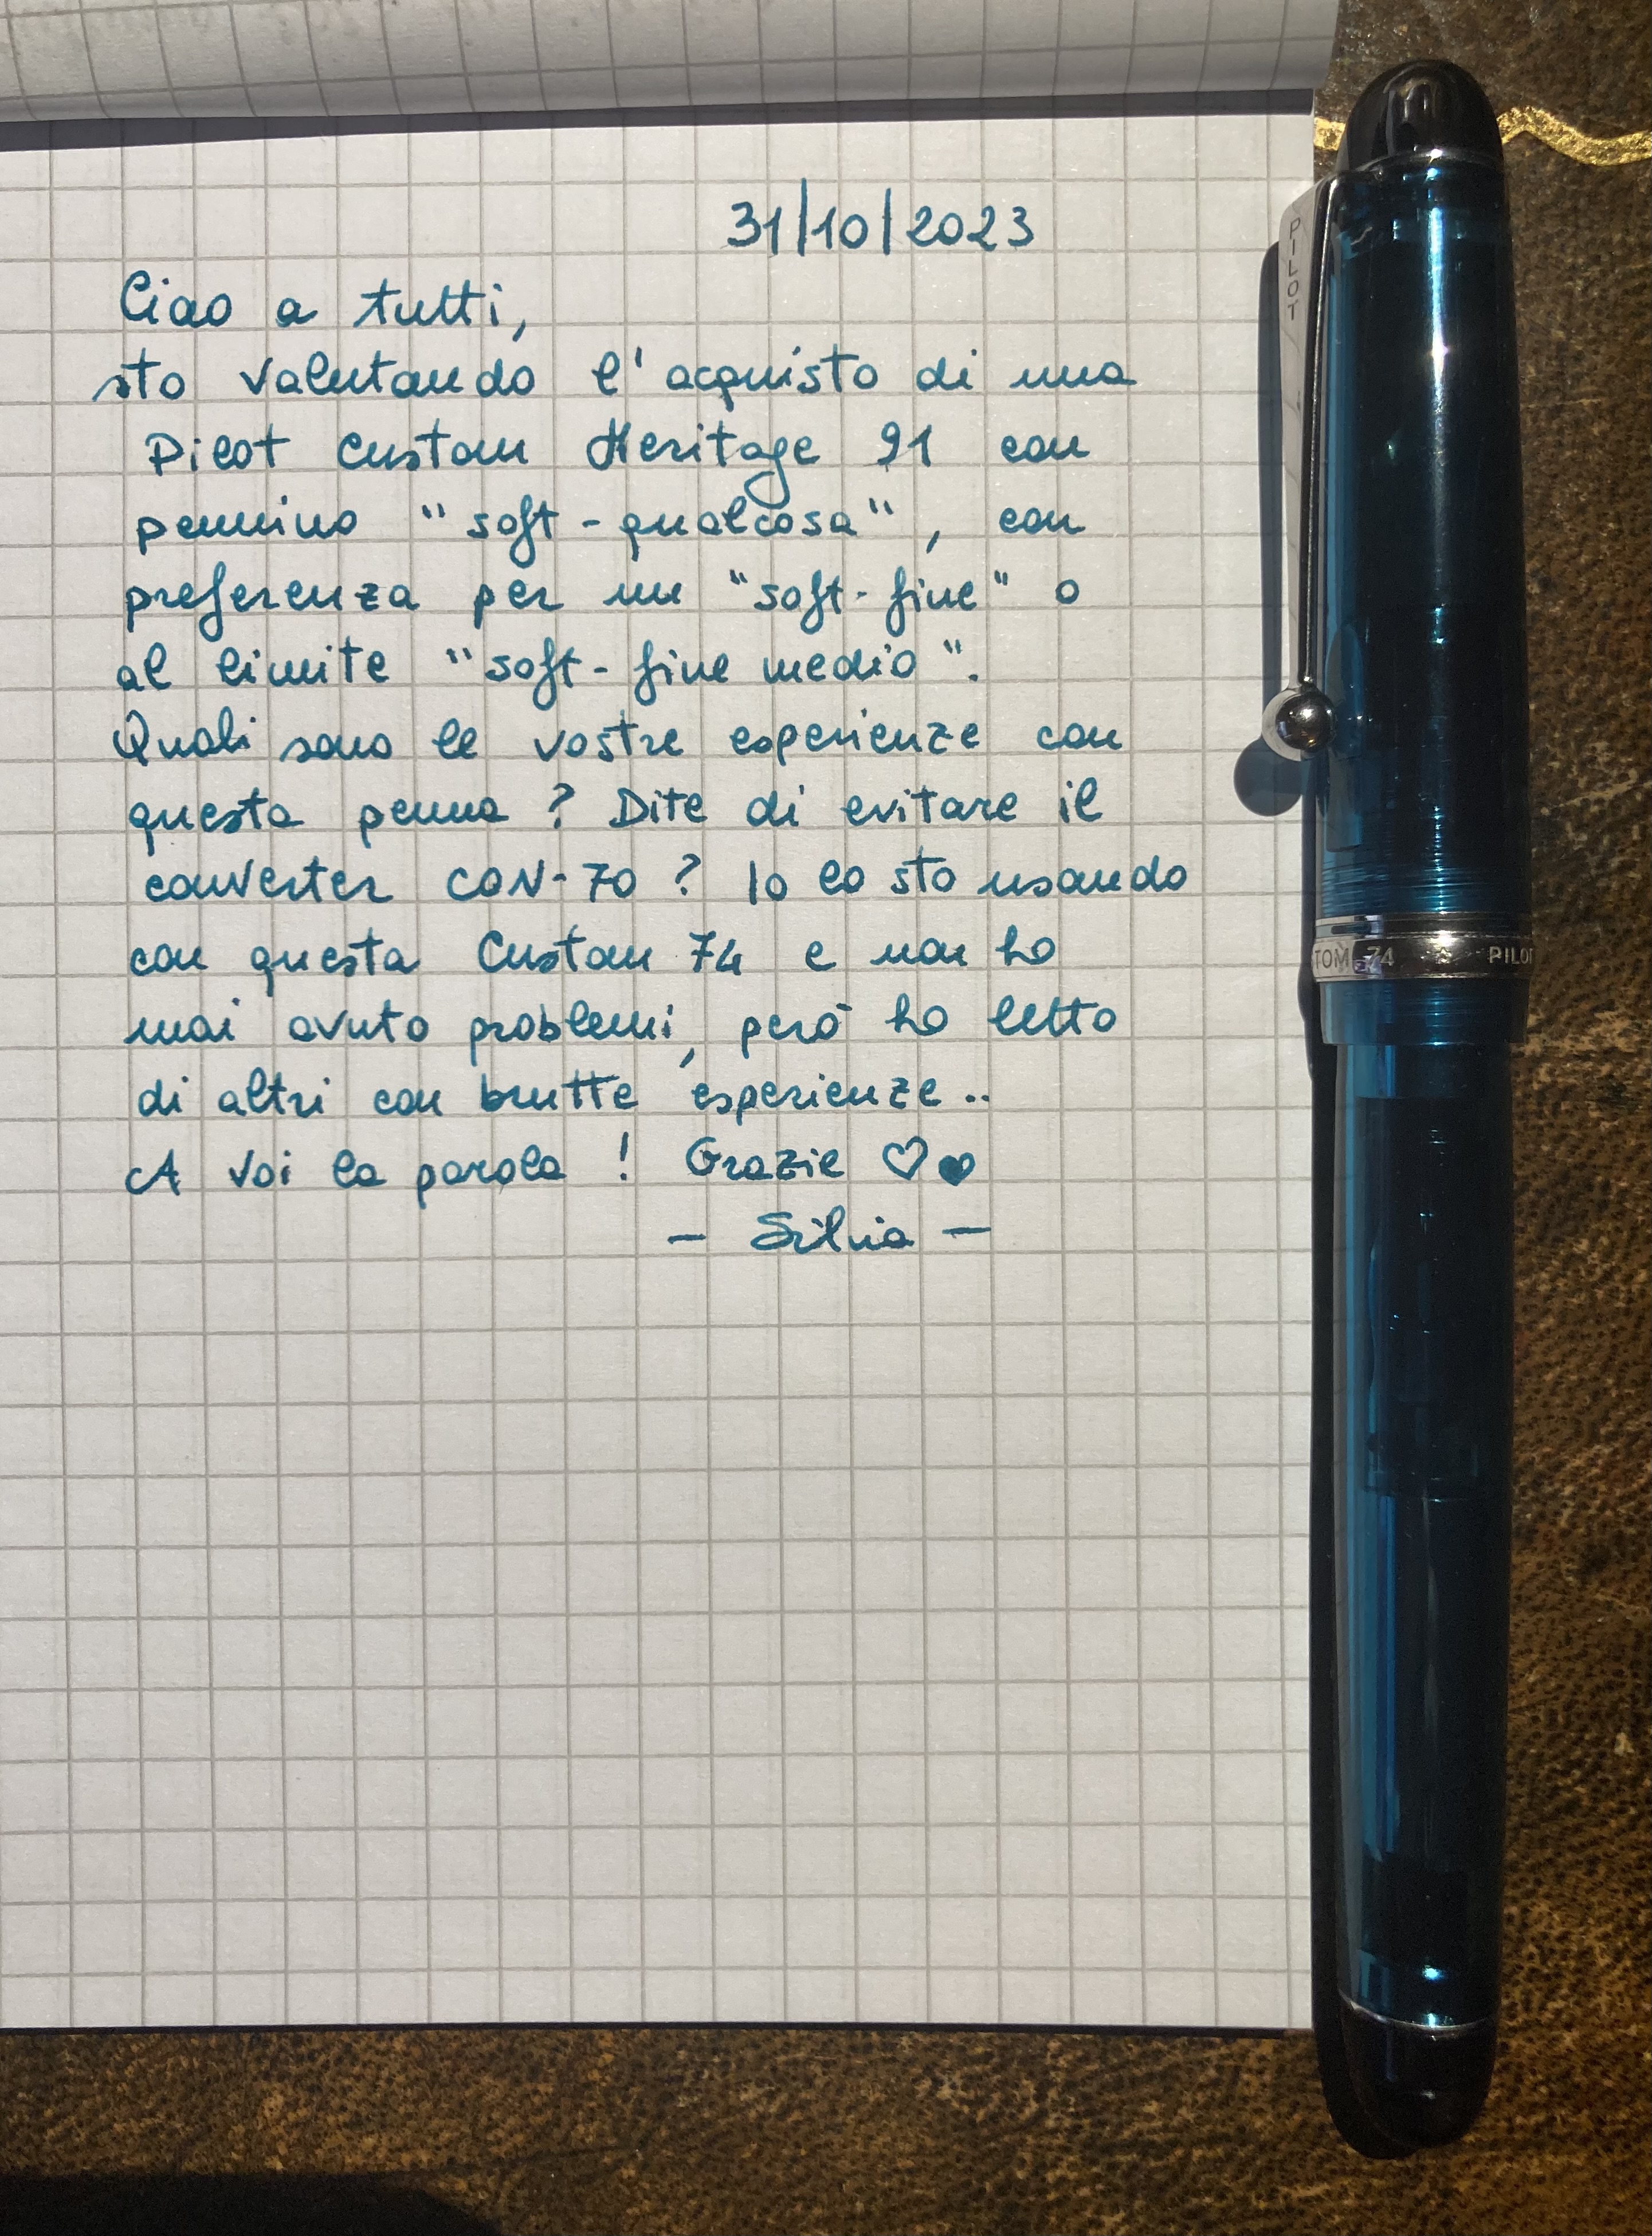 31/10/2023
Ciao a tutti,
sto valutando l'acquisto di una
Pilot Custom Heritage 91 con
pennino "soft-qualcosa", con
preferenza per un "soft-fine" o
al limite "soft-fine medio".
Quali sono le vostre esperienze con
questa penna? Dite di evitare il
converter CON-70? Io lo sto usando
con questa Custom 74 e non ho
mai avuto problemi, però ho letto
di altri con brutte esperienze..
A voi la parola! Grazie ♡♥
- Silvia -
PILOT
TOM 74 ☆ PILOT